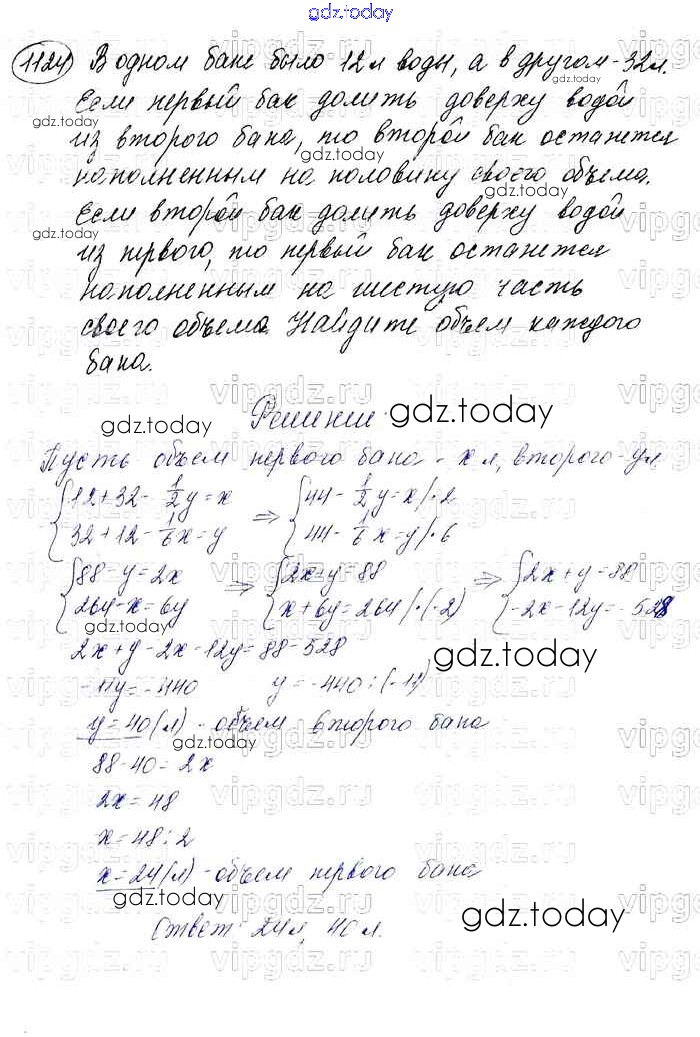 gdz.today
1124) В одном баке было 12 л воды, а в другом - 32 л.
Если первый бак долить доверху водой
из второго бака, то второй бак останется
наполненным на половину своего объема.
Если второй бак долить доверху водой
из первого, то первый бак останется
наполненным на шестую часть
своего объема. Найдите объем каждого
бака.
Решение:
Пусть объем первого бака - x л, второго - y л.
{12+32-1/2y=x {32+12-1/6x=y => {44-1/2y=x/·2 {44-1/6x=y/·6
{88-y=2x {264-x=6y => {2x+y=88 {x+6y=264/·(-2) => {2x+y=88 {-2x-12y=-528
2x+y-2x-12y=88-528
-11y=-440 y=-440:(-11)
y=40(л) - объем второго бака
88-40=2x
2x=48
x=48:2
x=24(л) - объем первого бака
Ответ: 24 л, 40 л.